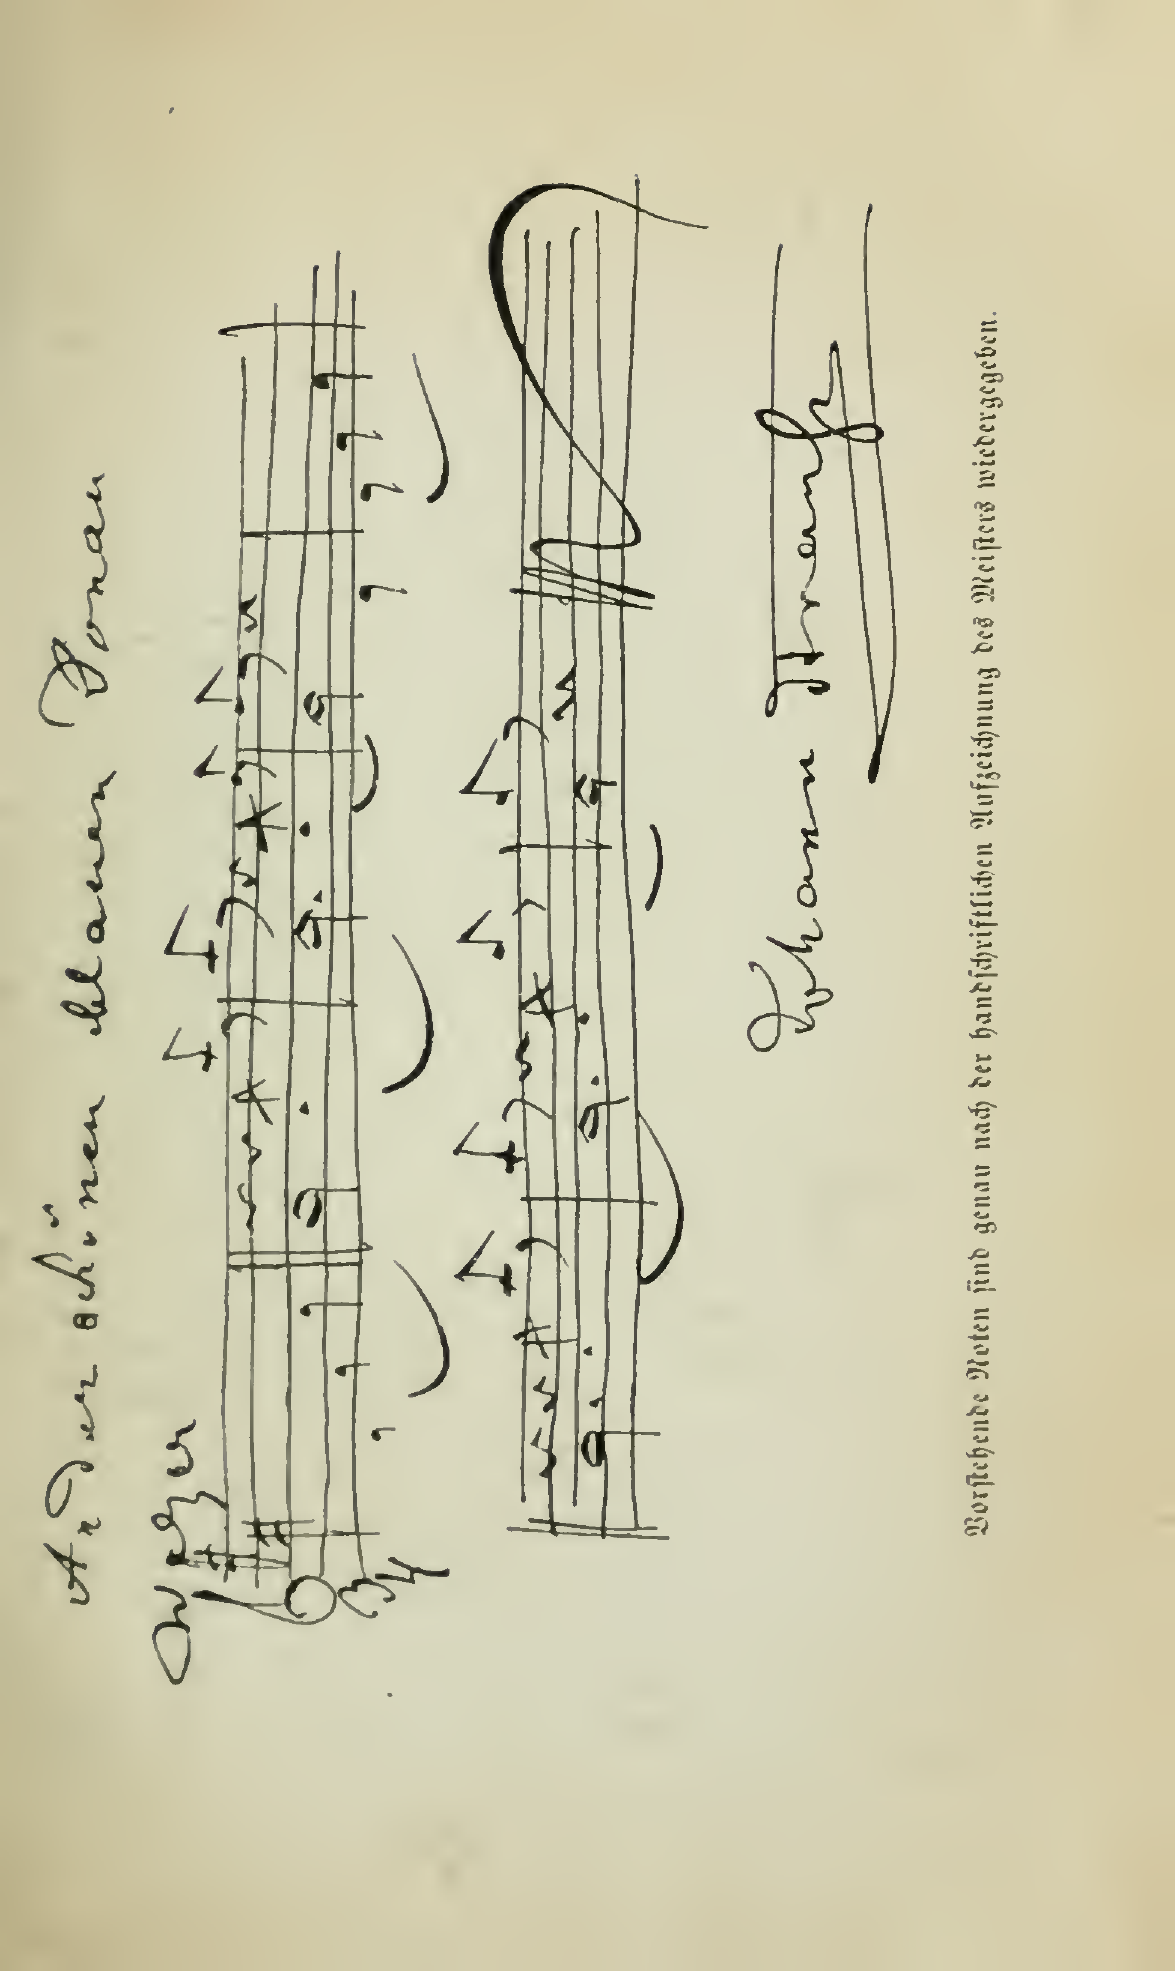 An der schönen blauen Donau
Walzer
3/4
Johann Strauß
Vorſtehende Noten ſind genau nach der handſchriftlichen Aufzeichnung des Meiſters wiedergegeben.